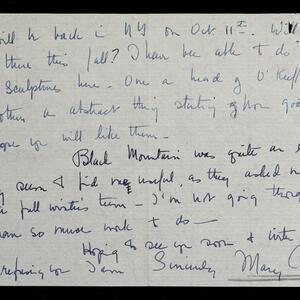 will be back in NY on Oct 11th. Will
there this fall? I have been able to do
Sculptures here. One a head of O'Keeff
an abstract thing starting from
hope you will like them —
Black Mountain was quite an
seem I did me useful, as they asked m
fall winters term — I'm not going though
so much work to do —
Hoping to see you soon & with
I am Sincerely Mary C